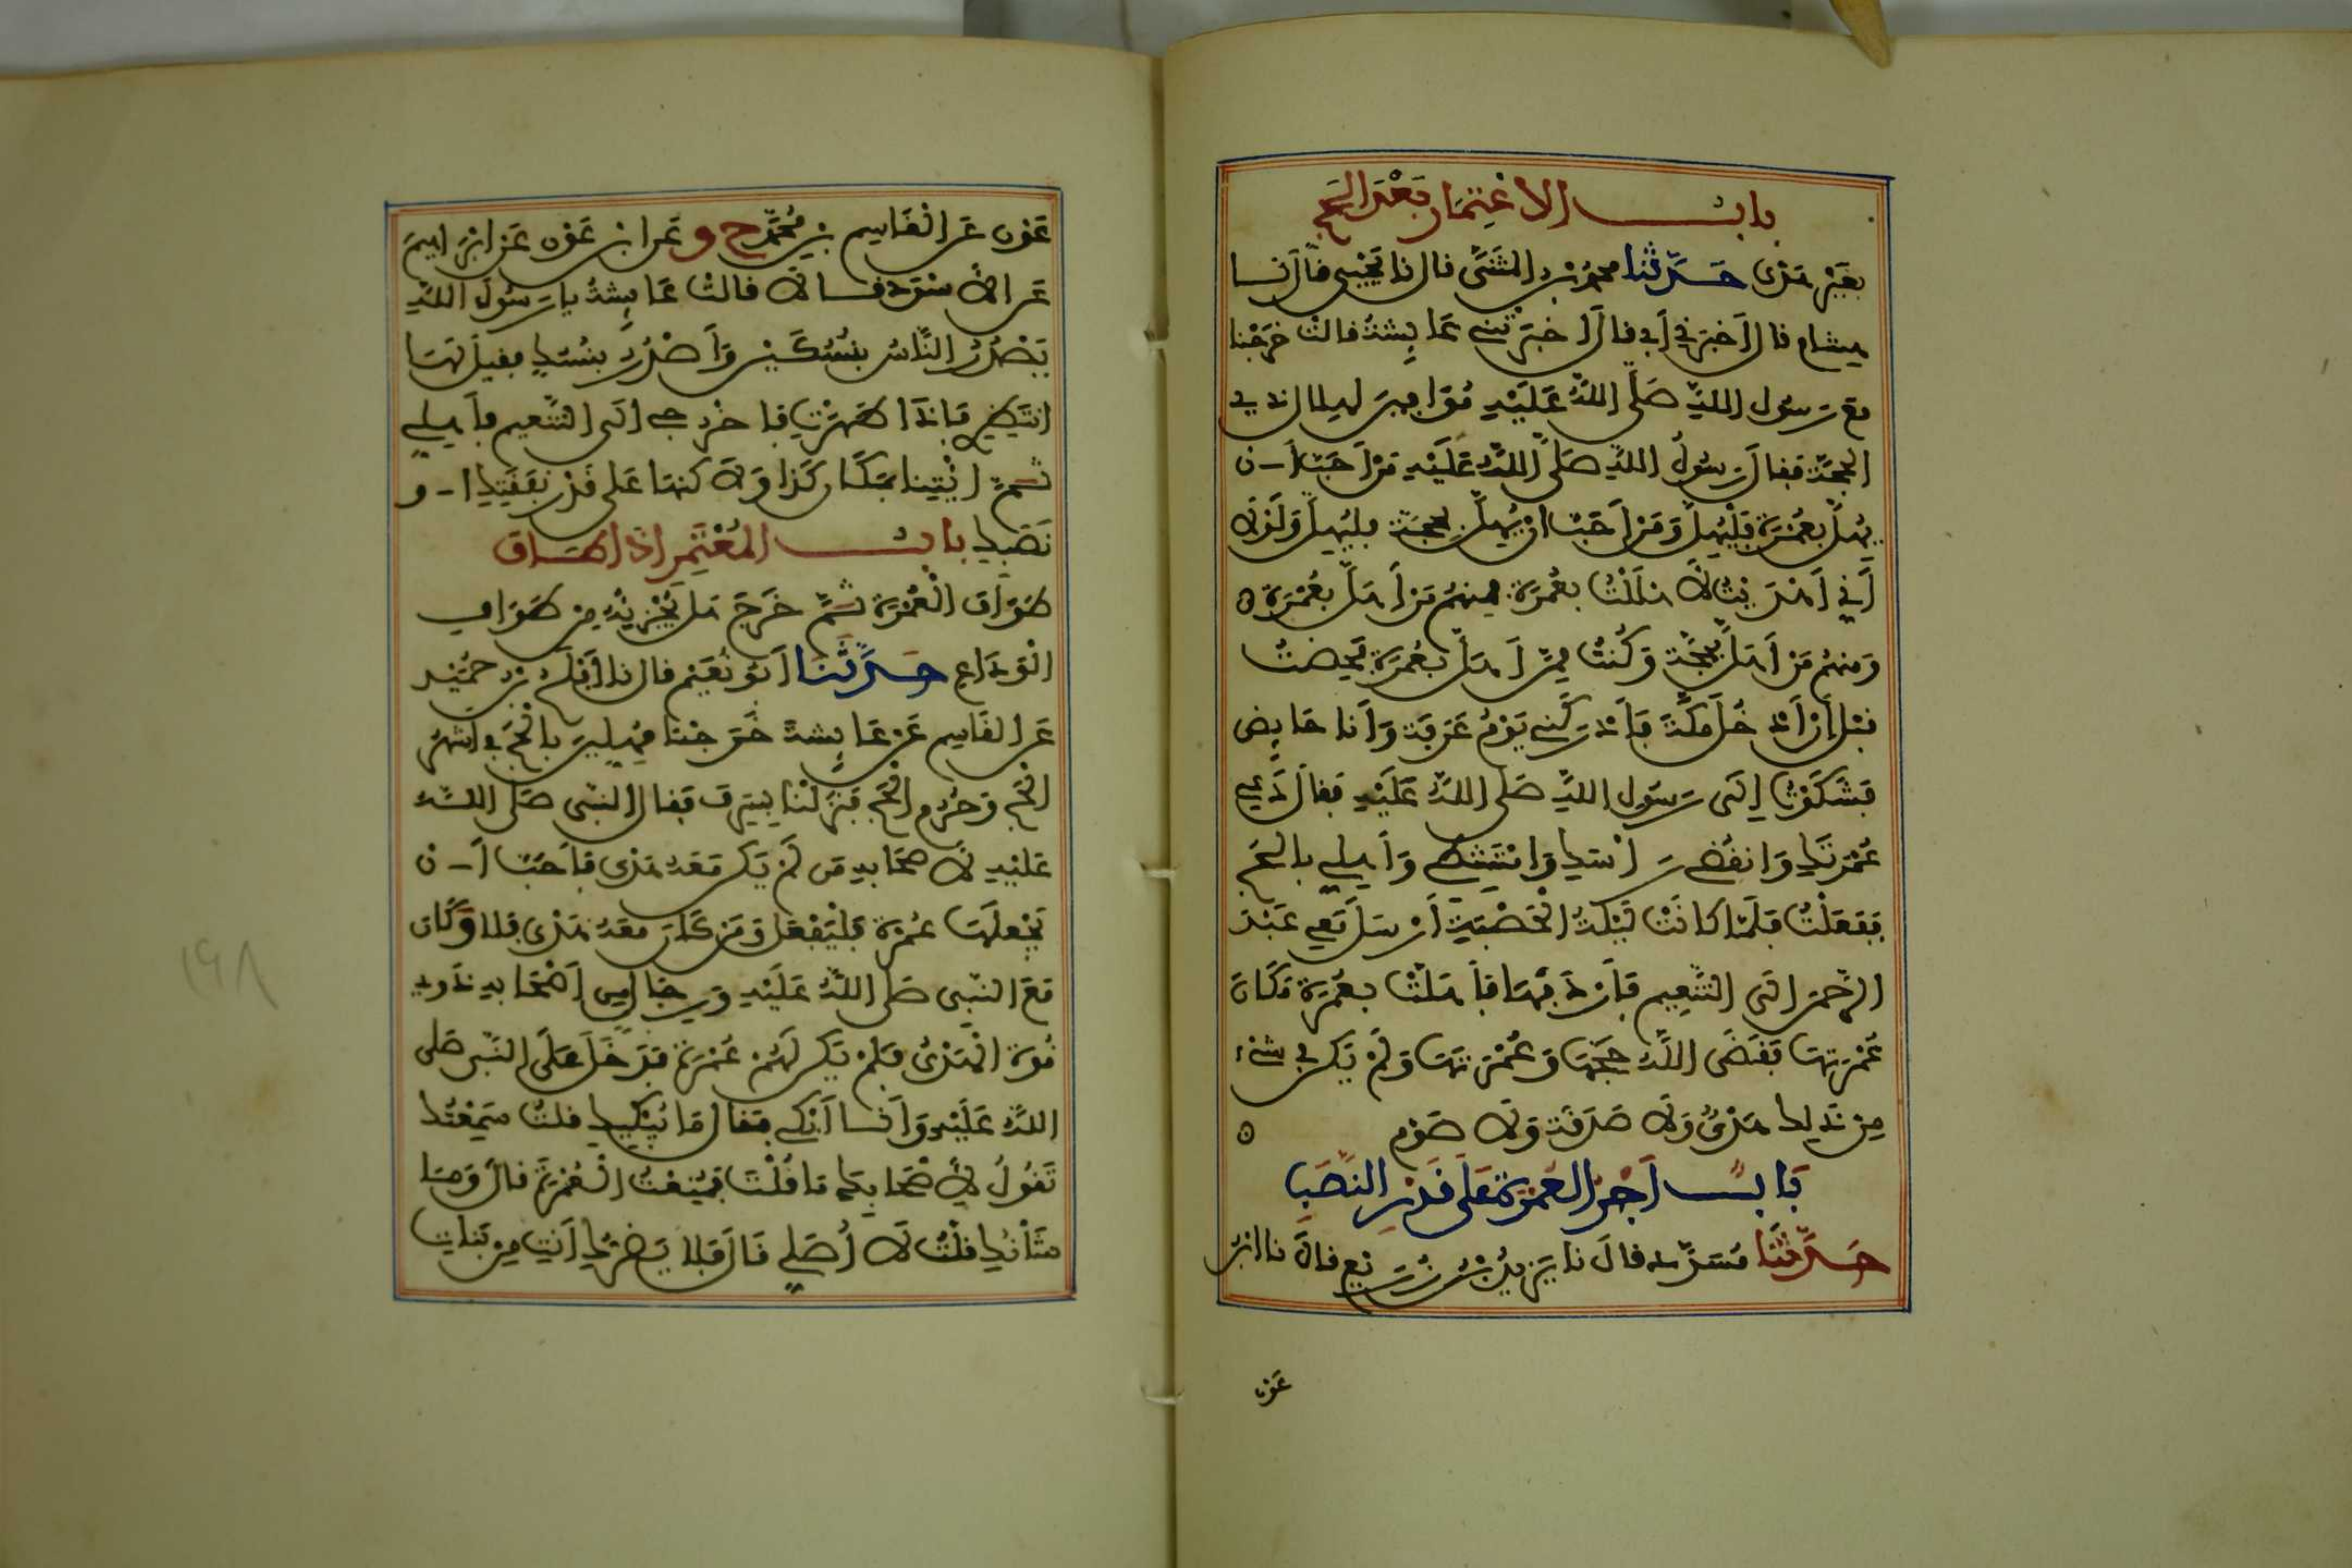 باب الاعتمار بعد الحج
بغير هدى حدثنا محمد بن المثنى قال نا يحيى قال نا
هشام قال أخبرني أبي قال أخبرتني عايشة قالت خرجنا
مع رسول الله صلى الله عليه موافين لهلال ذي
الحجة فقال رسول الله صلى الله عليه من أحب أن
يهل بعمرة فليهل ومن أحب ان يهل بحجة فليهل ولولا
أني أهديت لأهللت بعمرة فمنهم من أهل بعمرة
ومنهم من أهل بحجة وكنت ممن أهل بعمرة فحضت
قبل أن أدخل مكة فأدركني يوم عرفة وأنا حايض
فشكوت إلى رسول الله صلى الله عليه فقال دعي
عمرتك وانقضي راسك وامتشطي وأهلي بالحج
ففعلت فلما كانت ليلة الحصبة أرسل معي عبد
الرحمن الى التنعيم فأردفها فأهلت بعمرة مكان
عمرتها فقضى الله حجها وعمرتها ولم يكن في شيء
من ذلك هدي ولا صدقة ولا صوم
باب أجر العمرة على قدر النصب
حدثنا مسدد قال نا يزيد بن زريع قال نا ابن
عون
عون عن القاسم بن محمد ح وعن ابن عون عن ابراهيم
عن الأسود قالا قالت عايشة يا رسول الله
يصدر الناس بنسكين وأصدر بنسك فقيل لها
انتظري فإذا طهرت فاخرجي الى التنعيم فأهلي
ثم ائتينا بمكان كذا ولاكنها على قدر نفقتك أو
نصبك باب المعتمر اذا طاف
طواف العمرة ثم خرج هل يجزيه من طواف
الوداع حدثنا أبو نعيم قال نا أفلح بن حميد
عن القاسم عن عايشة خرجنا مهلين بالحج في أشهر
الحج وحرم الحج فنزلنا بسرف فقال النبي صلى الله
عليه لأصحابه من لم يكن معه هدى فأحب أن
يجعلها عمرة فليفعل ومن كان معه هدى فلا وكان
مع النبي صلى الله عليه ورجال من أصحابه ذوي
قوة الهدي فلم يكن لهم عمرة فدخل على النبي صلى
الله عليه وأنا أبكي فقال ما يبكيك قلت سمعتك
تقول لأصحابك ما قلت فمنعت العمرة قال وما
شأنك قلت لا أصلي قال فلا يضرك أنت من بنات
١٩٨